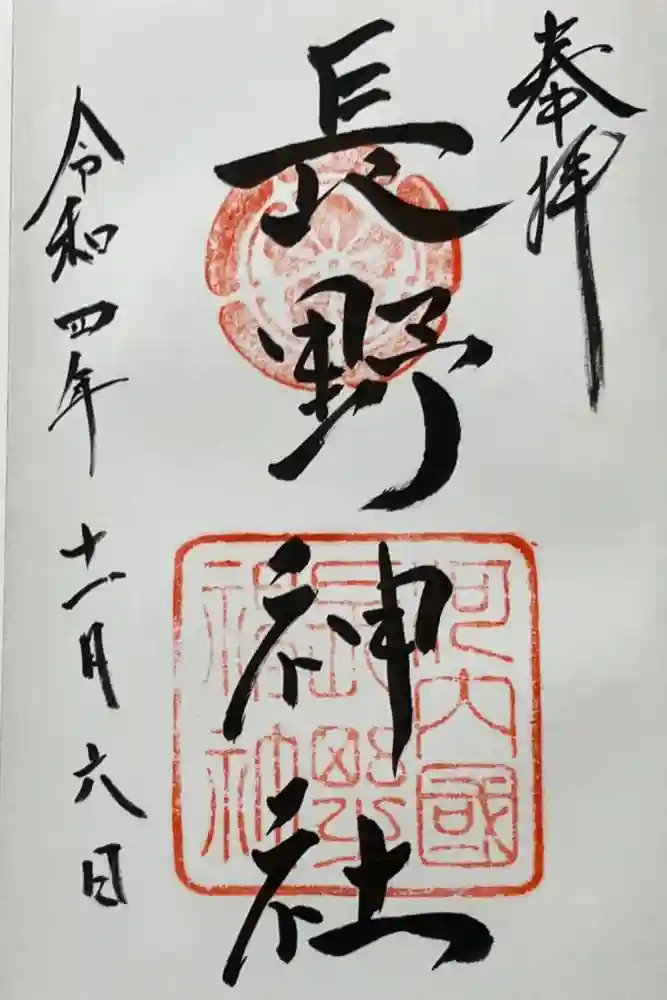 奉拝
長野神社
河内國
令和四年十一月六日